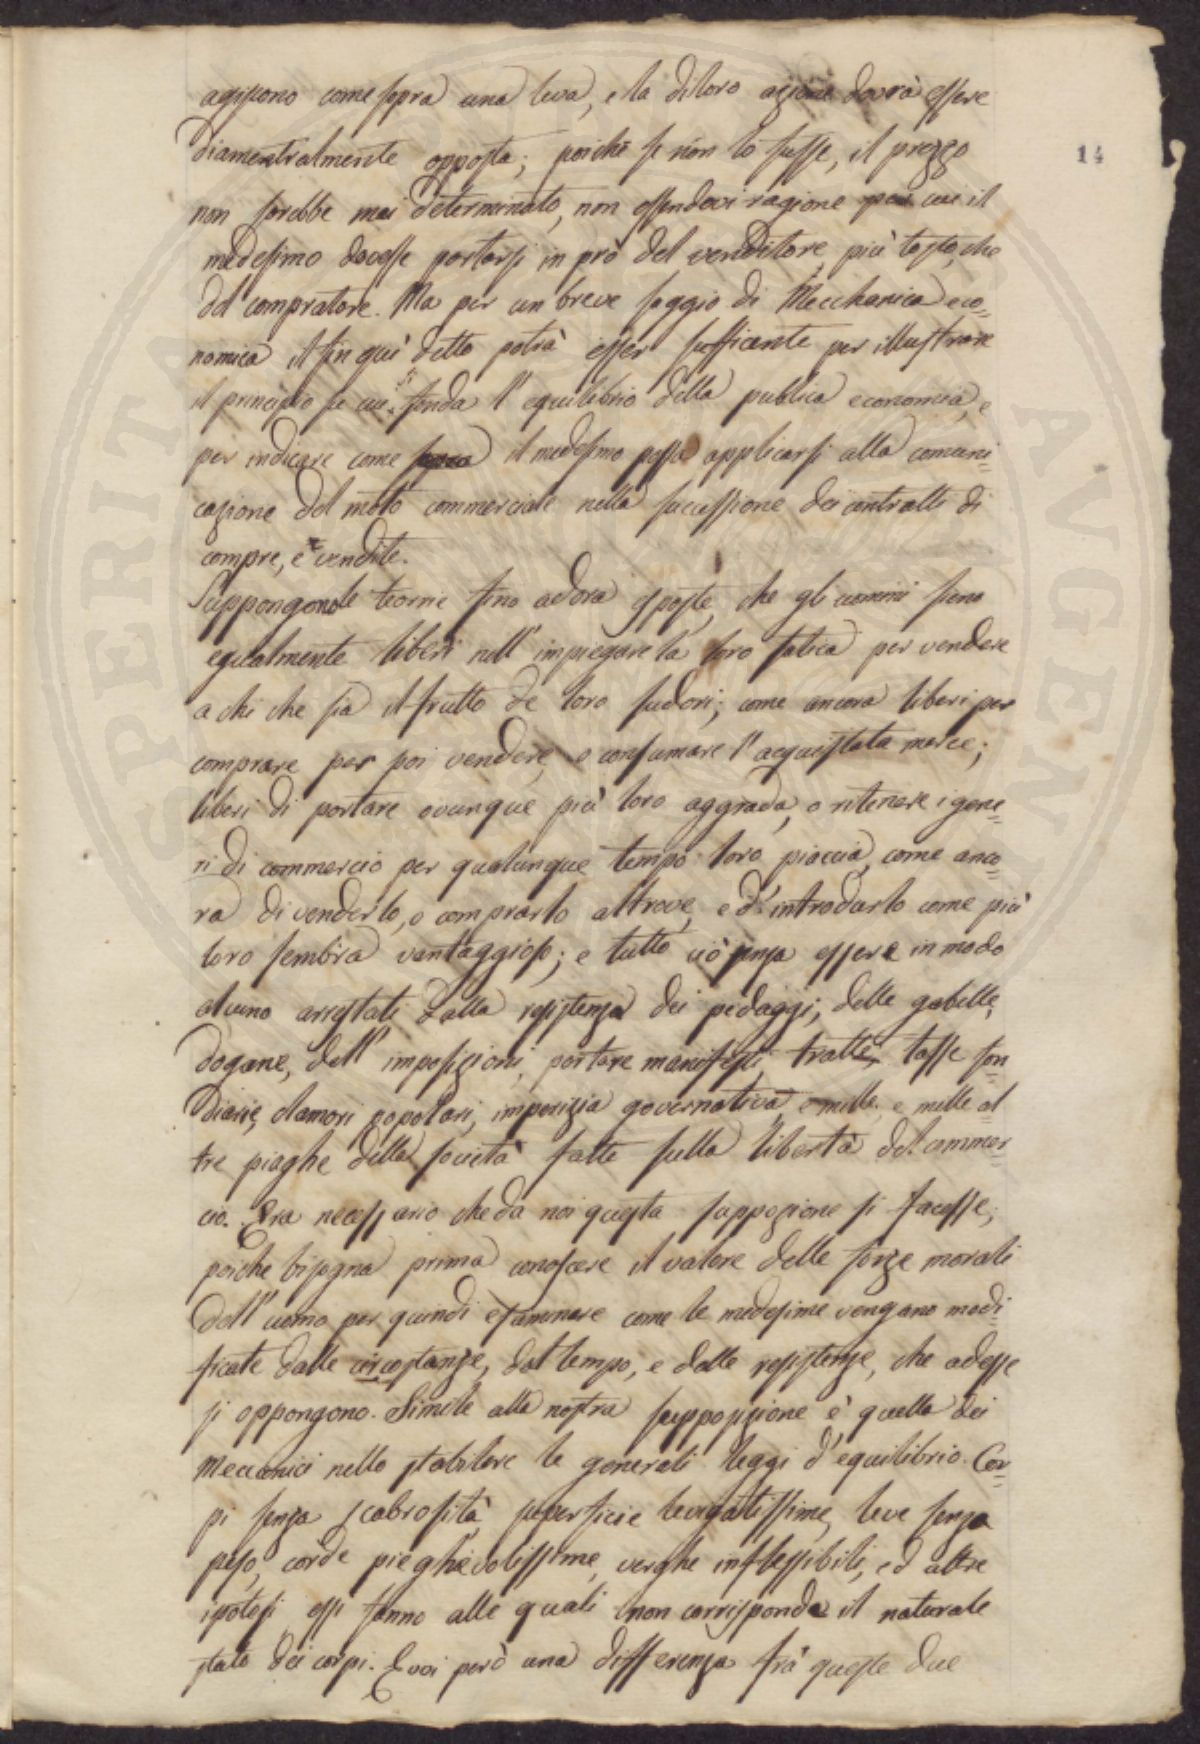 agissono come sopra una leva, e la di loro azione dovrà essere
diamentralmente opposta; poichè se non lo fusse, il prezzo
14
non sarebbe mai determinato, non essendovi ragione per cui il
medesimo dovesse portarsi in prò del venditore, più tosto, che
del compratore. Ma per un breve saggio di Mecchanica eco=
nomica il fin quì detto potrà esser sufficente per illustrare
il principio su cui si fonda l'equilibrio della publica economia, e
per indicare come il medesimo possa applicarsi alla comuni=
cazione del moto commerciale nella successione dei contratti di
compre, e vendite.
Suppongono le teorie fino adora esposte, che gli uomini sieno
egualmente liberi nell'impiegare la loro fatica per vendere
a chi che sia il frutto de loro sudori; come ancora liberi per
comprare per poi vendere, o consumare l'acquistata merce;
liberi di portare ovunque più loro aggrada, o ritenere i gene=
ri di commercio per qualunque tempo loro piaccia, come anco=
ra di venderlo, o comprarlo altrove, e d'introdurlo come più
loro sembra vantaggioso; e tutto ciò senza essere in modo
alcuno arrestati dalla resistenza dei pedaggi, delle gabelle,
dogane, dell'imposizioni, portare manifesti, tratte, tasse fon=
diarie, clamori popolari, imperizia governativa, e mille, e mille al
tre piaghe della società fatte sulla libertà del commer=
cio. Era necessario che da noi questa suppozione si facesse;
poichè bisogna prima conoscere il valore delle forze morali
dell'uomo per quindi esaminare come le medesime vengano modi
ficate dalle circostanze, dal tempo, e dalle resistenze, che adesse
si oppongono. Simile alla nostra supposizione è quella dei
Meccanici nello stabilire le generali leggi d'equilibrio. Cor=
pi senza scabrosità, superficie levigatissime, leve senza
peso, corde pieghevolissime, verghe inflessibili, ed altre
ipotesi essi fanno alle quali non corrisponde il naturale
stato dei corpi. Evvi però una differenza frà queste due